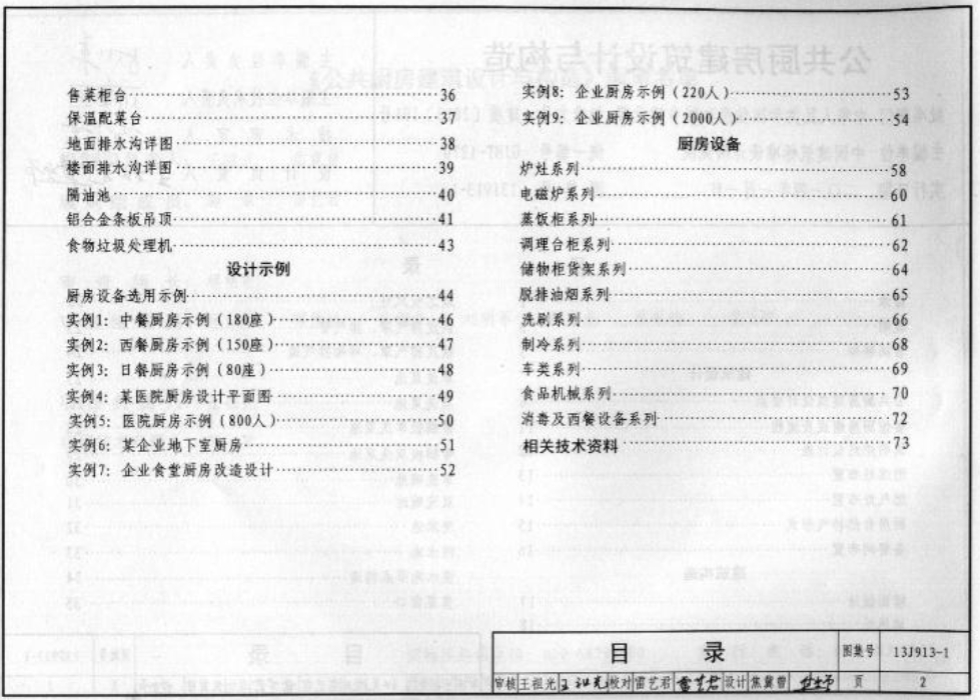 售菜柜台 36
保温配菜台 37
地面排水沟详图 38
楼面排水沟详图 39
隔油池 40
铝合金条板吊顶 41
食物垃圾处理机 43
设计示例
厨房设备选用示例 44
实例1：中餐厨房示例（180座） 46
实例2：西餐厨房示例（150座） 47
实例3：日餐厨房示例（80座） 48
实例4：某医院厨房设计平面图 49
实例5：医院厨房示例（800人） 50
实例6：某企业地下室厨房 51
实例7：企业食堂厨房改造设计 52
实例8：企业厨房示例（220人） 53
实例9：企业厨房示例（2000人） 54
厨房设备
炉灶系列 58
电磁炉系列 60
蒸饭柜系列 61
调理台柜系列 62
储物柜货架系列 64
脱排油烟系列 65
洗刷系列 66
制冷系列 68
车类系列 69
食品机械系列 70
消毒及西餐设备系列 72
相关技术资料 73
目 录 图集号 13J913-1
审核 王祖光 校对 雷艺君 设计 焦冀曾 页 2